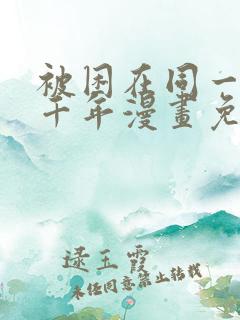 被困在同一
千年漫畫免
逯玉霞
未经同意禁止转载